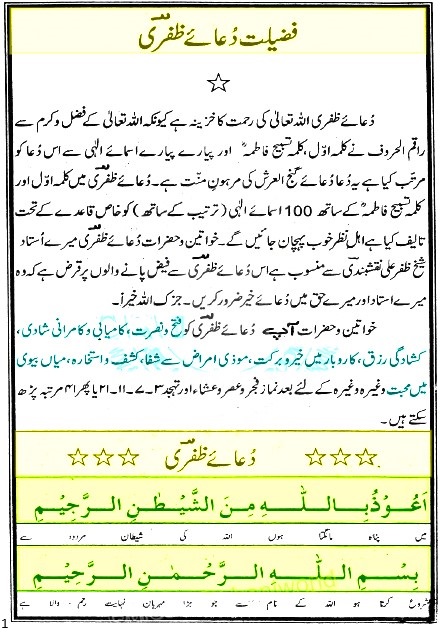 فضیلت دُعائے ظفری
دُعائے ظفری اللہ تعالیٰ کی رحمت کا خزینہ ہے کیونکہ اللہ تعالیٰ کے فضل و کرم سے
راقم الحروف نے کلمہ اوّل، کلمہ تسبیح فاطمہؓ اور پیارے پیارے اسمائے الٰہی سے اس دُعا کو
مرتب کیا ہے یہ دُعا دُعائے گنج العرش کی مرہونِ منّت ہے۔ دُعائے ظفری میں کلمہ اوّل اور
کلمہ تسبیح فاطمہؓ کے ساتھ 100 اسمائے الٰہی (ترتیب کے ساتھ) کو خاص قاعدے کے تحت
تالیف کیا ہے اہل نظر خوب پہچان جائیں گے۔ خواتین و حضرات دُعائے ظفری میرے اُستاد
شیخ ظفر علی نقشبندی سے منسوب ہے اس دُعائے ظفری سے فیض پانے والوں پر قرض ہے کہ وہ
میرے استاد اور میرے حق میں دُعائے خیر ضرور کریں۔ جزک اللہ خیراً۔
خواتین و حضرات آپ دُعائے ظفری کو فتح و نصرت، کامیابی و کامرانی شادی،
کشادگی رزق، کاروبار میں خیر و برکت، موذی امراض سے شفا، کشف و استخارہ، میاں بیوی
میں محبت وغیرہ وغیرہ کے لئے بعد نماز فجر و عصر و عشاء اور تہجد ۳۔۷۔۱۱۔۲۱ یا پھر ۴۱ مرتبہ پڑھ
سکتے ہیں۔
دُعائے ظفری
اَعُوْذُ بِاللّٰهِ مِنَ الشَّيْطٰنِ الرَّجِيْمِ
میں پناہ مانگتا ہوں اللہ کی شیطان مردود سے
بِسْمِ اللّٰهِ الرَّحْمٰنِ الرَّحِيْمِ
شروع کرتا ہو اللہ کے نام سے جو بڑا مہربان نہایت رحم والا ہے
1